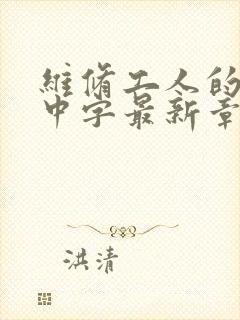 維脩工人的
中字最新章
洪清